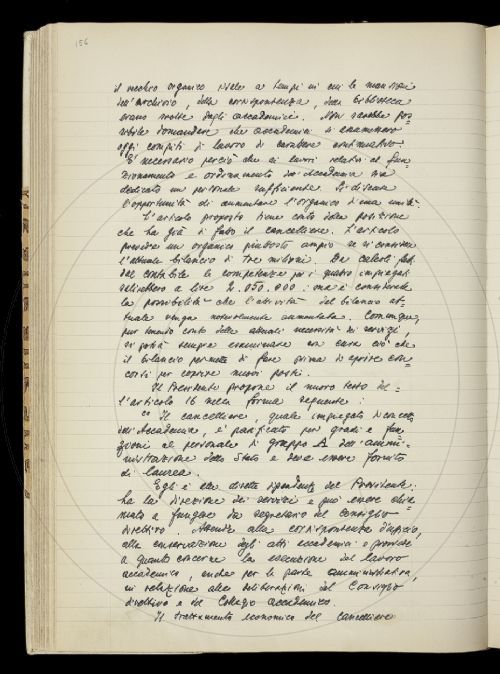 156
il vecchio organico risale a tempi in cui le mansioni
dell'archivio, della corrispondenza, della biblioteca
erano svolte dagli accademici. Non sarebbe pos-
sibile domandare che accademici si esaminano
oggi compiti di lavoro di carattere continuativo.
E' necessario perciò che ai lavori relativi al fun-
zionamento e ordinamento dell'Accademia sia
dedicato un personale sufficiente. Si discute
l'opportunità di aumentare l'organico di una unità.
L'articolo proposto tiene conto della posizione
che ha già di fatto il cancelliere. L'articolo
prevede un organico piuttosto ampio se si considera
l'attuale bilancio di tre milioni. Da calcoli fatti
dal contabile le competenze per i quattro impiegati
salirebbero a lire 2.050.000: ma è considerata
la possibilità che l'attività del bilancio at-
tuale venga notevolmente aumentata. Comunque,
pur tenendo conto delle attuali necessità di servizi,
si potrà sempre esaminare con cura ciò che
il bilancio permette di fare prima di aprire con-
corsi per coprire nuovi posti.
Il Presidente propone il nuovo testo del-
l'articolo 16 nella forma seguente:
"Il cancelliere, quale impiegato di concetto
dell'Accademia, è parificato per gradi e fun-
zioni al personale di gruppo A dell'ammi-
nistrazione dello Stato e deve essere fornito
di laurea.
Egli è alla diretta dipendenza del Presidente:
ha la direzione dei servizi e può essere chia-
mato a fungere da segretario del Consiglio
direttivo. Attende alla corrispondenza d'ufficio,
alla conservazione degli atti accademici e provvede
a quanto concerne la esecuzione del lavoro
accademico, anche per la parte amministrativa,
in relazione alle deliberazioni del Consiglio
direttivo e del Collegio accademico.
Il trattamento economico del cancelliere